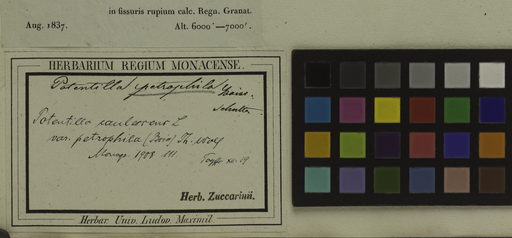 in fissuris rupium calc. Regn. Granat.
Aug. 1837. Alt. 6000'—7000'.
HERBARIUM REGIUM MONACENSE.
Potentilla petrophila Boiss.
Potentilla caulescens L
var. petrophila (Boiss) Th. Wolf
Monogr. 1908 111
Herb. Zuccarinii.
Herbar. Univ. Ludov. Maximil.